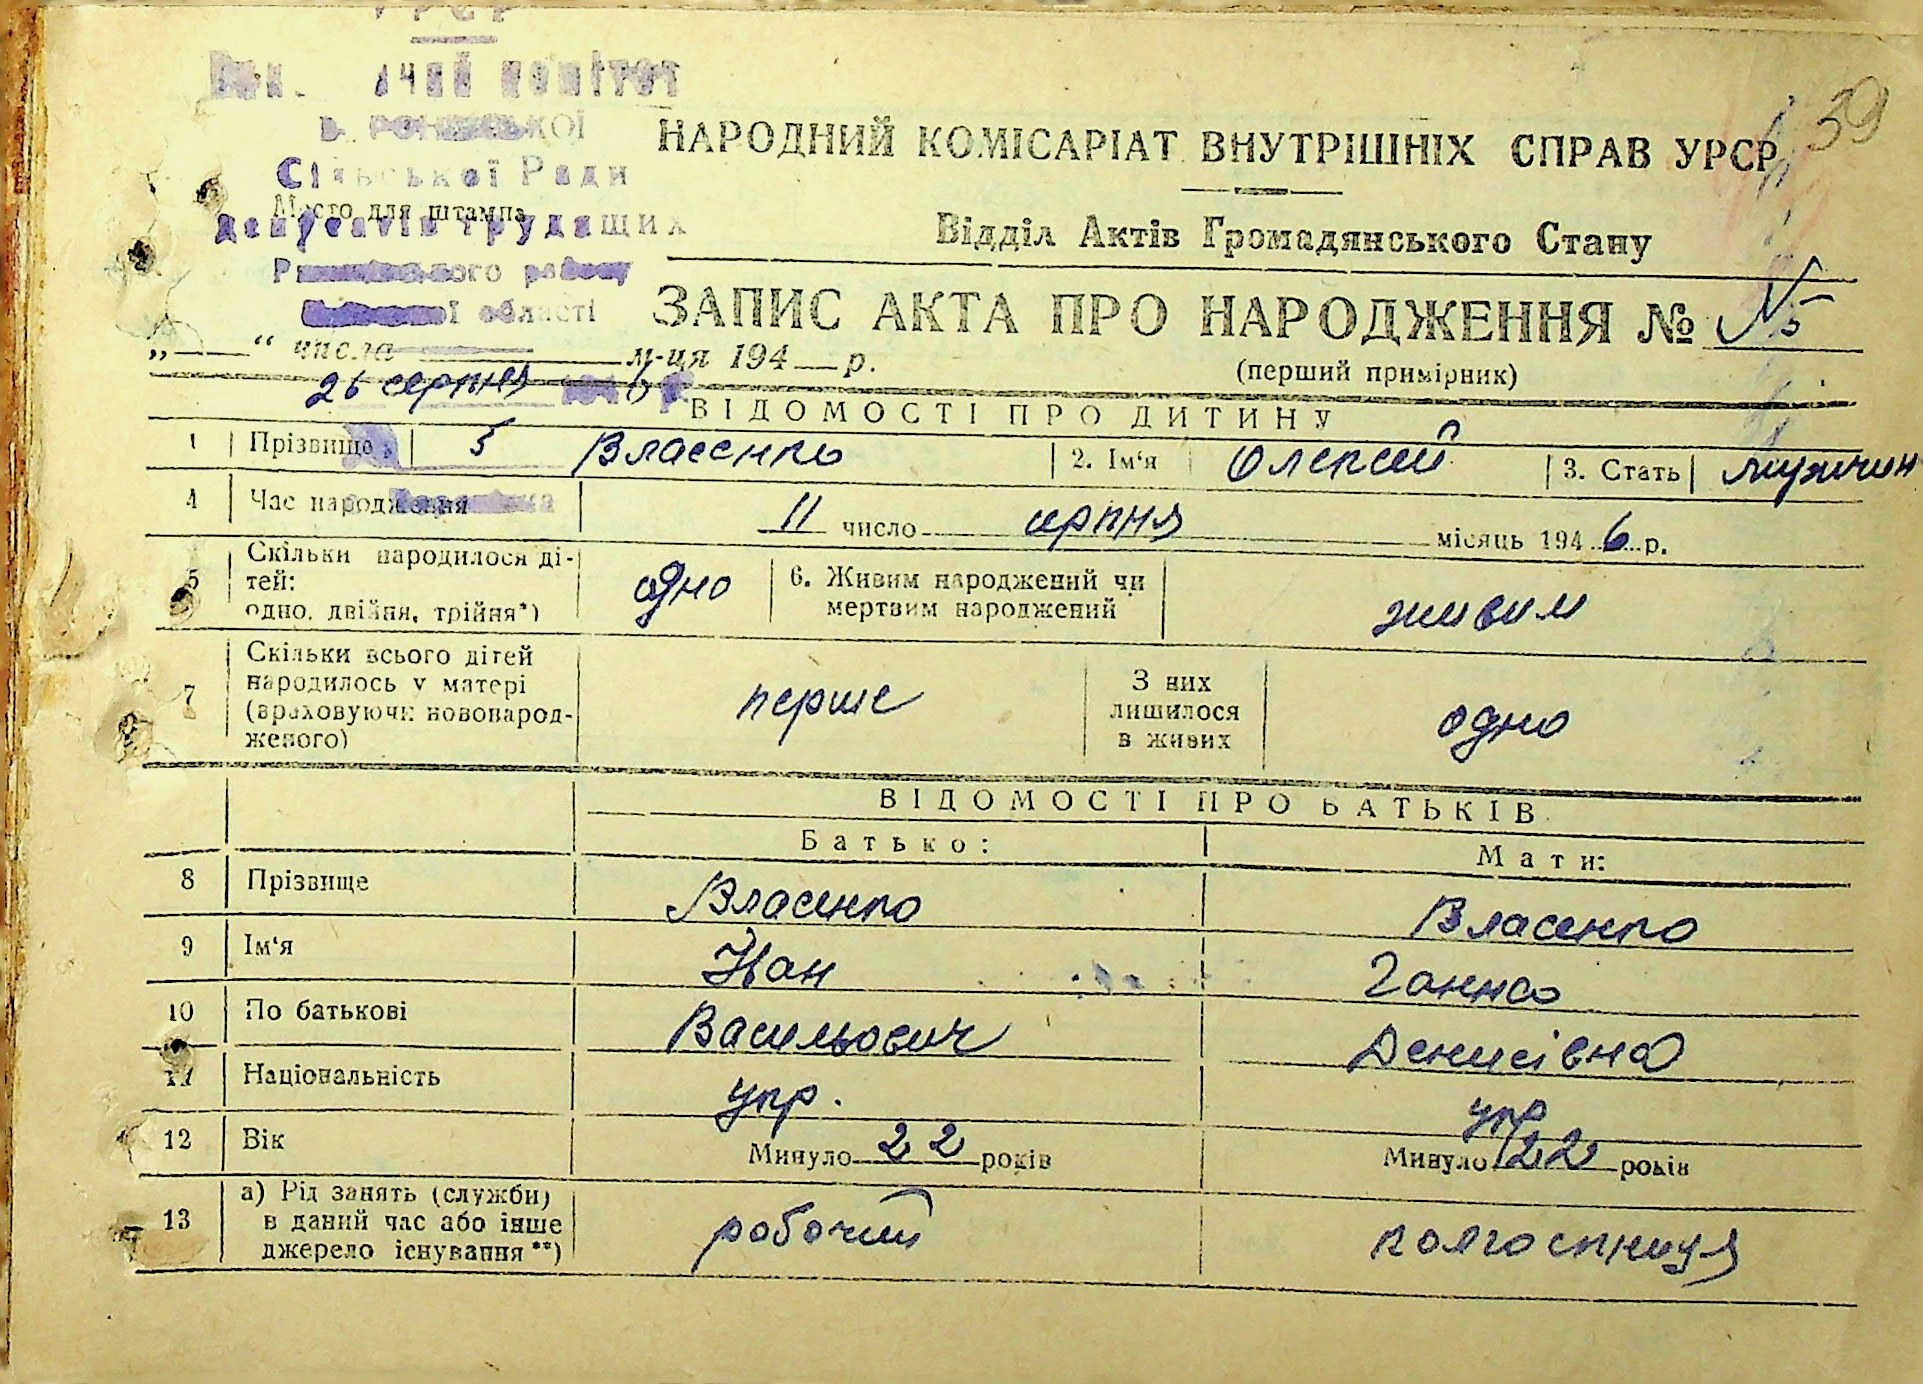 УРСР
комітет
Сільської Ради
Місто для штампа
депутатів трудящих
району
області
59
НАРОДНИЙ КОМІСАРІАТ ВНУТРІШНІХ СПРАВ УРСР
Відділ Актів Громадянського Стану
ЗАПИС АКТА ПРО НАРОДЖЕННЯ № 5
(перший примірник)
„——“ числа м-ця 194 р.
26 серпня 1946 р
ВІДОМОСТІ ПРО ДИТИНУ
1 Прізвище 5 Власенко 2. Ім‘я Олексій 3. Стать мужчин
4 Час народження 11 число серпня місяць 1946 р.
5 Скільки народилося ді-
тей:
одно, двійня, трійня*) одно 6. Живим народжений чи
мертвим народжений живим
7 Скільки всього дітей
народилось у матері
(враховуючи новонарод-
женого) перше З них
лишилося
в живих одно
ВІДОМОСТІ ПРО БАТЬКІВ
Батько: Мати:
8 Прізвище Власенко Власенко
9 Ім‘я Іван Ганна
10 По батькові Васильович Денисівна
11 Національність укр. укр
12 Вік Минуло 22 років Минуло 22 років
13 а) Рід занять (служби)
в даний час або інше
джерело існування**) робочий колгоспниця